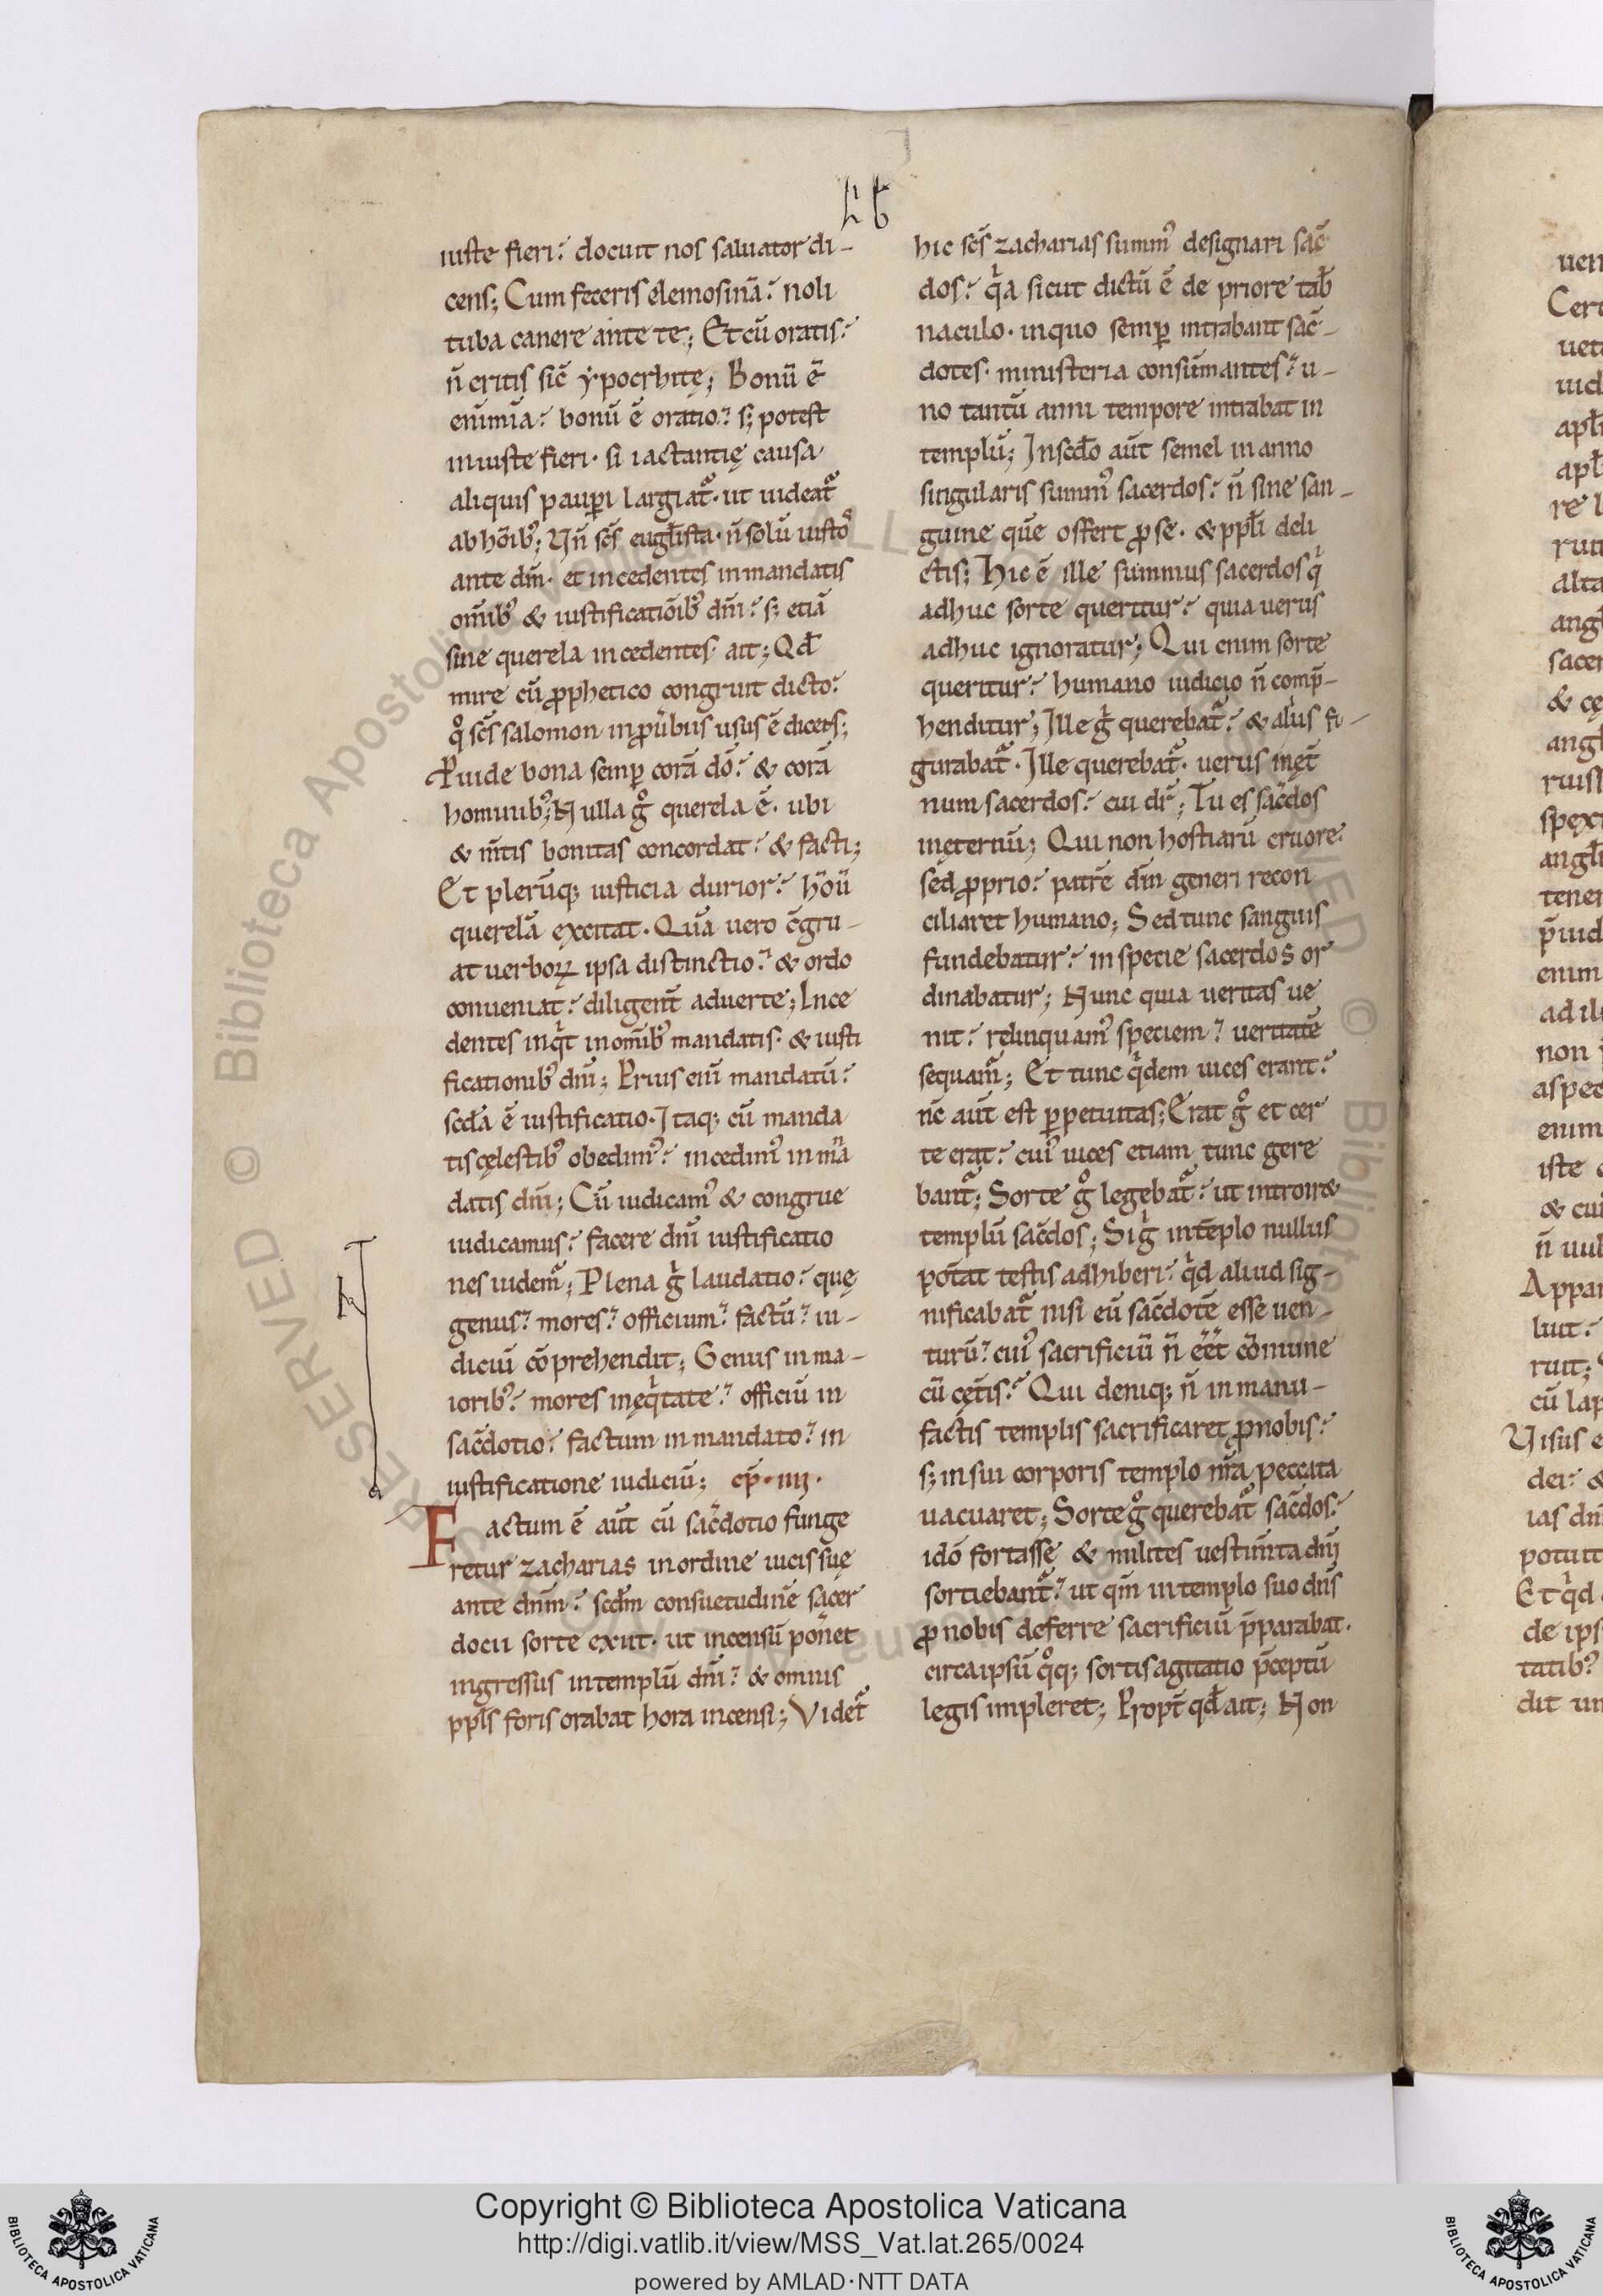 Lb
iuste fieri? docuit nos saluator di-
cens; Cum feceris elemosinā? noli
tuba canere ante te; Et cū oratis?
n̄ eritis sic̄ ypocrhitę; Bonū ē
enī mīa? bonū ē oratio? s; potest
iniuste fieri· si iactantię causa
aliquis pauꝑi largiat᷑· ut uideat᷑
ab hōib᷒; Vn̄ sc̄s euḡlista· n̄ solū iustos
ante dm̄· et incedentes in mandatis
om̄ib᷒ & iustificatiōib᷒ dn̄i? s; etiā
sine querela incedentes· ait; Qđ
mire cū ꝓphetico congruit dicto?
qͦ sc̄s salomon in ꝓuerbiis usus ē dicens;
Ꝓuide bona semꝑ corā dō? & corā
hominib᷒; Nulla gͦ querela ē· ubi
& m̄tis bonitas concordat? & facti;
Et plerūq; iusticia durior? hōū
querelā excitat· Quā uero c̄gru-
at uerboꝝ ipsa distinctio? & ordo
conueniat? diligent̄ aduerte; Ince
dentes inqͥt in om̄ib᷒ mandatis· & iusti
ficationib᷒ dn̄i; Prius enī mandatū?
scđa ē iustificatio· Itaq; cū manda
tis cęlestib᷒ obedim᷒? incedim᷒ in mā
datis dn̄i; Cū iudicam᷒ & congrue
iudicamus? facere dn̄i iustificatio
nes uidem᷑; Plena gͥ laudatio? quę
genus? mores? officium? factū? iu-
diciū cōprehendit; Genus in ma-
iorib᷒? mores in ęqͥtate? officiū in
sac̄dotio? factum in mandato? in
iustificatione iudiciū; cp̄· iiii·
Factum ē aūt cū sac̄dotio funge
retur zacharias in ordine uicis suę
ante dn̄m? scđm consuetudinē sacer
docii sorte exiit· ut incensū poneret
ingressus in templū dn̄i? & omnis
ppl̄s foris orabat hora incensi; Videt᷑
hic sc̄s zacharias summ᷒ designari sac̄
dos? qͥa sicut dictū ē de priore tab̄
naculo· in quo semꝑ intrabant sac̄-
dotes· ministeria consūmantes? u-
no tantū anni tempore intrabat in
templū; In scđo aūt semel in anno
singularis summ᷒ sacerdos? n̄ sine san-
guine quē offert ꝓ se· & ppl̄i deli
ctis; Hic ē ille summus sacerdos qͥ
adhuc sorte queritur? quia uerus
adhuc ignoratur; Qui enim sorte
queritur? humano iudicio n̄ comp̄-
henditur; Ille gͥ querebat᷑? & alius fi-
gurabat᷑· Ille querebat᷑· uerus in ęt̄
num sacerdos? cui dr̄; Tu es sac̄dos
in ęternū; Qui non hostiarū cruore?
sed ꝓprio? patrē dm̄ generi recon
ciliaret humano; Sed tunc sanguis
fundebatur? in specie sacerdos or
dinabatur; Nunc quia ueritas ue
nit? relinquam᷒ speciem? ueritatē
sequam᷑; Et tunc qͥdem uices erant?
nc̄ aūt est ꝑpetuitas; Erat gͦ et cer
te erat? cui᷒ uices etiam tunc gere
bant᷑; Sorte gͦ legebat᷑? ut introir&
templū sac̄dos; Si gͥ in tēplo nullus
pot̄at testis adhiberi? qͥd aliud sig-
nificabat᷑ nisi eū sac̄dotē esse uen-
turū? cui᷒ sacrificiū n̄ eēt cōmune
cū cęt̄is? Qui deniq; n̄ in manu-
factis templis sacrificaret ꝓ nobis?
s; in sui corporis templo nr̄a peccata
uacuaret; Sorte gͦ querebat᷑ sac̄dos?
idō fortasse & milites uestim̄ta dn̄i
sortiebant᷑? ut qm̄ in templo suo dn̄s
ꝓ nobis deferre sacrificiū p̄parabat·
circa ipsū qͦq; sortis agitatio p̄ceptū
legis impleret; Propt̄ qđ ait; Non
Copyright © Biblioteca Apostolica Vaticana
http://digi.vatlib.it/view/MSS_Vat.lat.265/0024
powered by AMLAD·NTT DATA
BIBLIOTECA APOSTOLICA VATICANA
BIBLIOTECA APOSTOLICA VATICANA